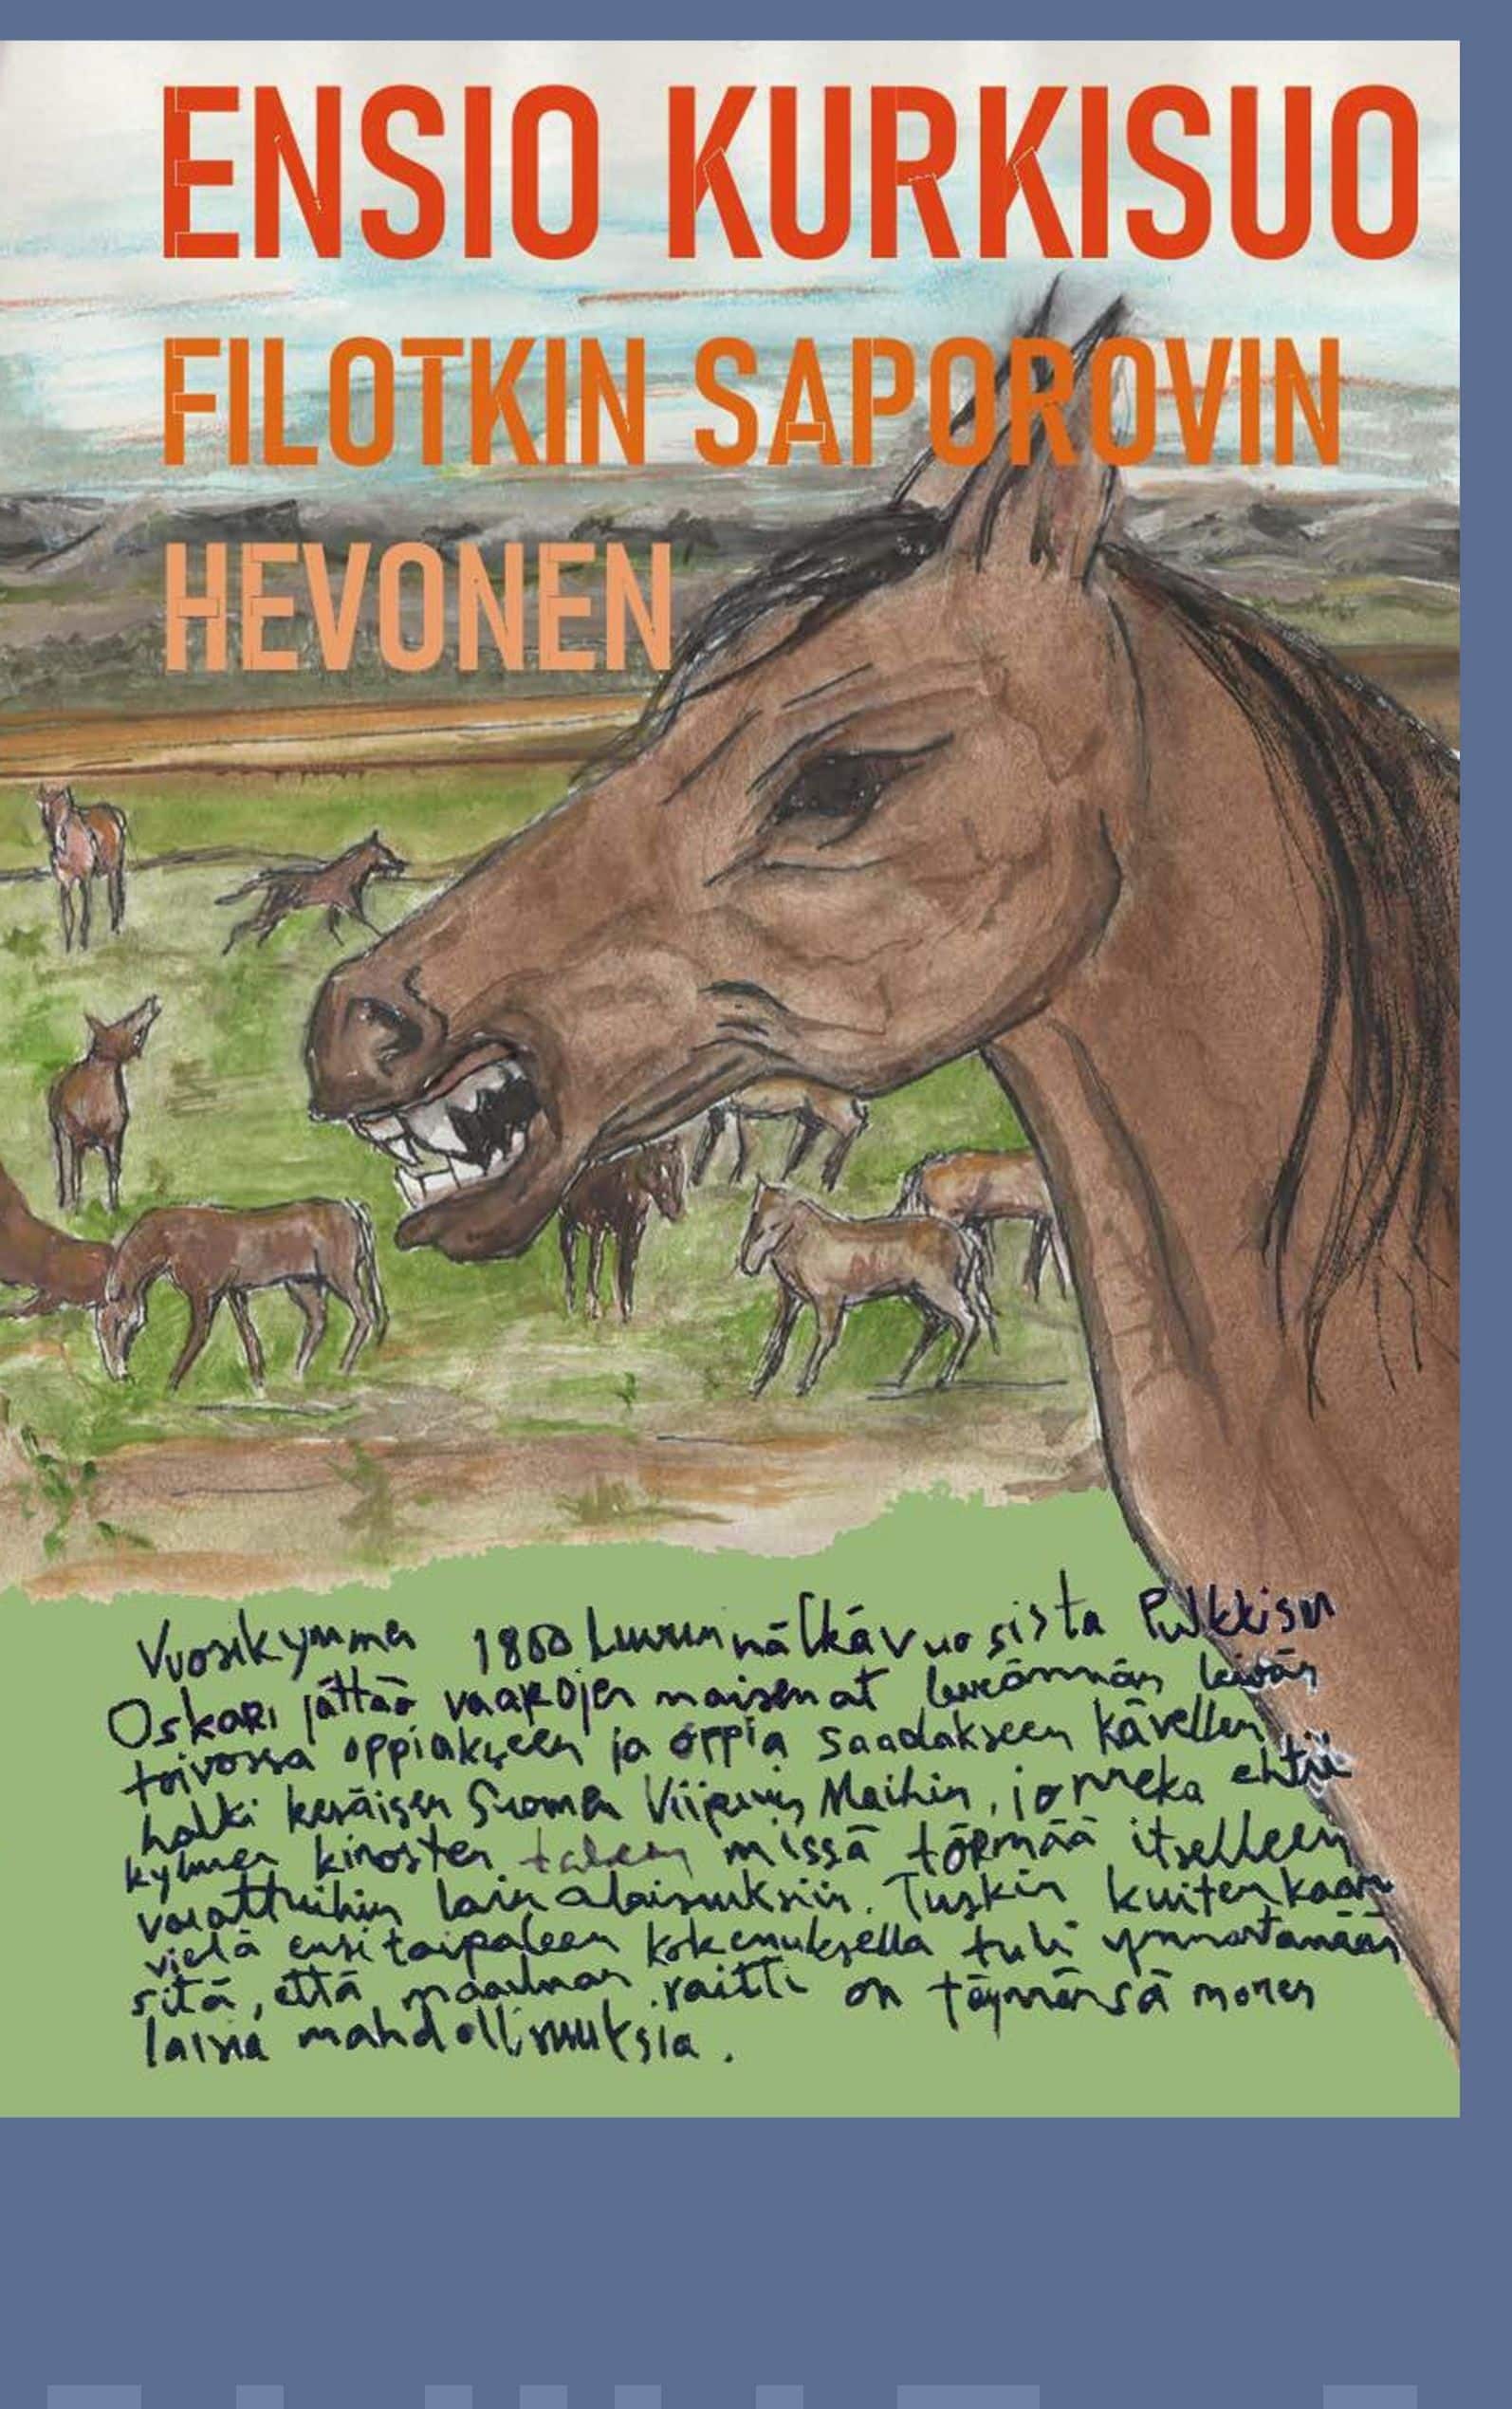 ENSIO KURKISUO
FILOTKIN SAPOROVIN
HEVONEN
Vuosikymmen 1860 luvun nälkävuosista Pulkkisen
Oskari jättää vaarojen maisemat leveämmän leivän
toivossa oppiakseen ja oppia saadakseen kävellen
halki kesäisen Suomen Viipurin Maihin, jonneka ehtii
kylmen kinosten taleen missä törmää itselleen
varattuihin lainalaisuuksiin. Tuskin kuitenkaan
vielä ensi taipaleen kokemuksella tuli ymmärtämään
sitä, että maailman raitti on täynnänsä monen
laisia mahdollisuuksia.